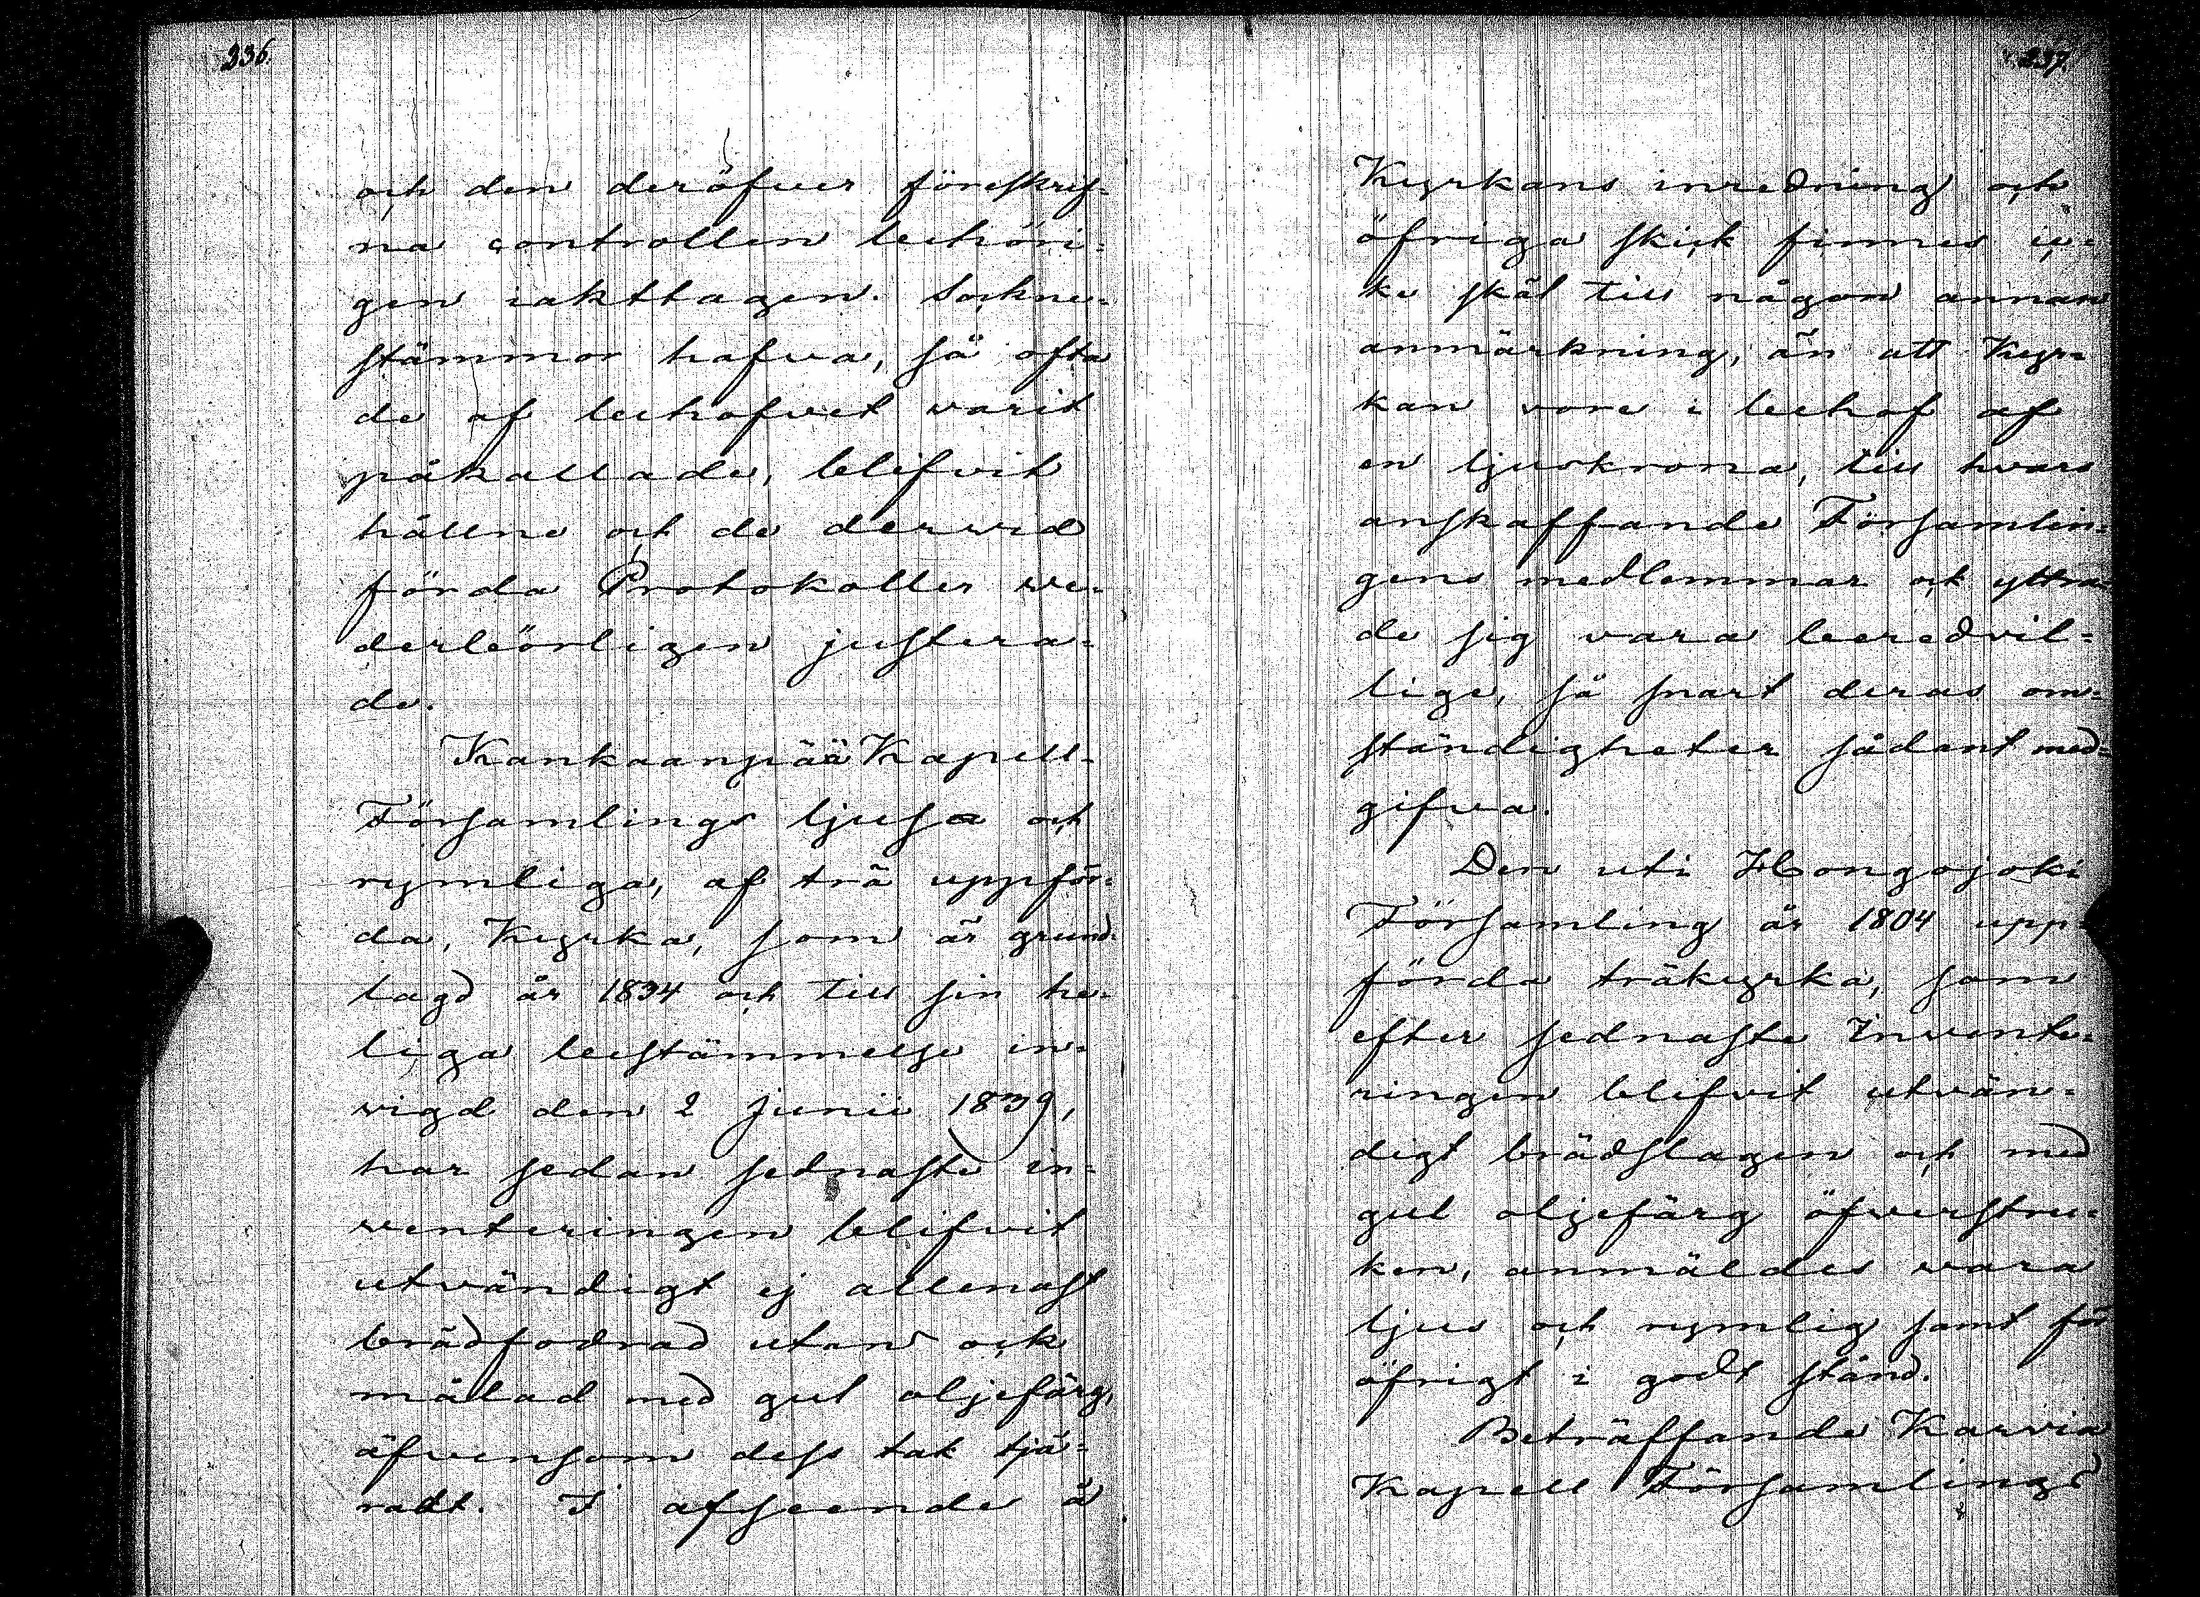 236.
och den deröfver föreskrif-
na controllen behöri-
gen iakttagen. Sockne-
stämmor hafva, så ofta
de af behofvet varit
påkallade, blifvit
hållne och de dervid
förda Protokoller ve-
derbörligen justera-
de.
Kankaanpää Kapell-
Församlings ljusa och
rymliga, af trä uppför-
da, Kyrka, som är grund-
lagd år 1834 och till sin he-
liga bestämmelse in-
vigd den 2 Junii 1839,
har sedan sednaste in-
venteringen blifvit
utvändigt ej allenast
brädfodrad utan ock
målad med gul oljefärg,
äfvensom dess tak tjä-
radt. I afseende å
237.
Kyrkans inredning och
öfriga skick finnes ic-
ke skäl till någon annan
anmärkning, än att Kyr-
kan vore i behof af
en ljuskrona, till hvars
anskaffande Församlin-
gens medlemmar ock yttra-
de sig vara beredvil-
lige, så snart deras om-
ständigheter sådant med-
gifva.
Den uti Hongojoki
Församling år 1804 upp-
förda träkyrka, som
efter sednaste Invente-
ringen blifvit utvän-
digt brädslagen och med
gul oljefärg öfverstru-
ken, anmäldes vara
ljus och rymlig samt för
öfrigt i godt stånd.
Beträffande Karvia
Kapell Församlings